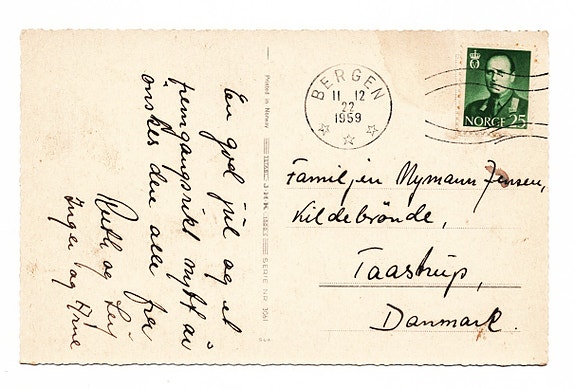 En god jul og et
fremgangsrikt nytt år
ønskes dere alle fra
Ruth og Leif
Inger og Arne
Printed in Norway
SERIE NR. 3061
BERGEN
11 12
22
1959
NORGE 25
Familjen Nymann Jensen,
Kildebrönde,
Taastrup,
Danmark.